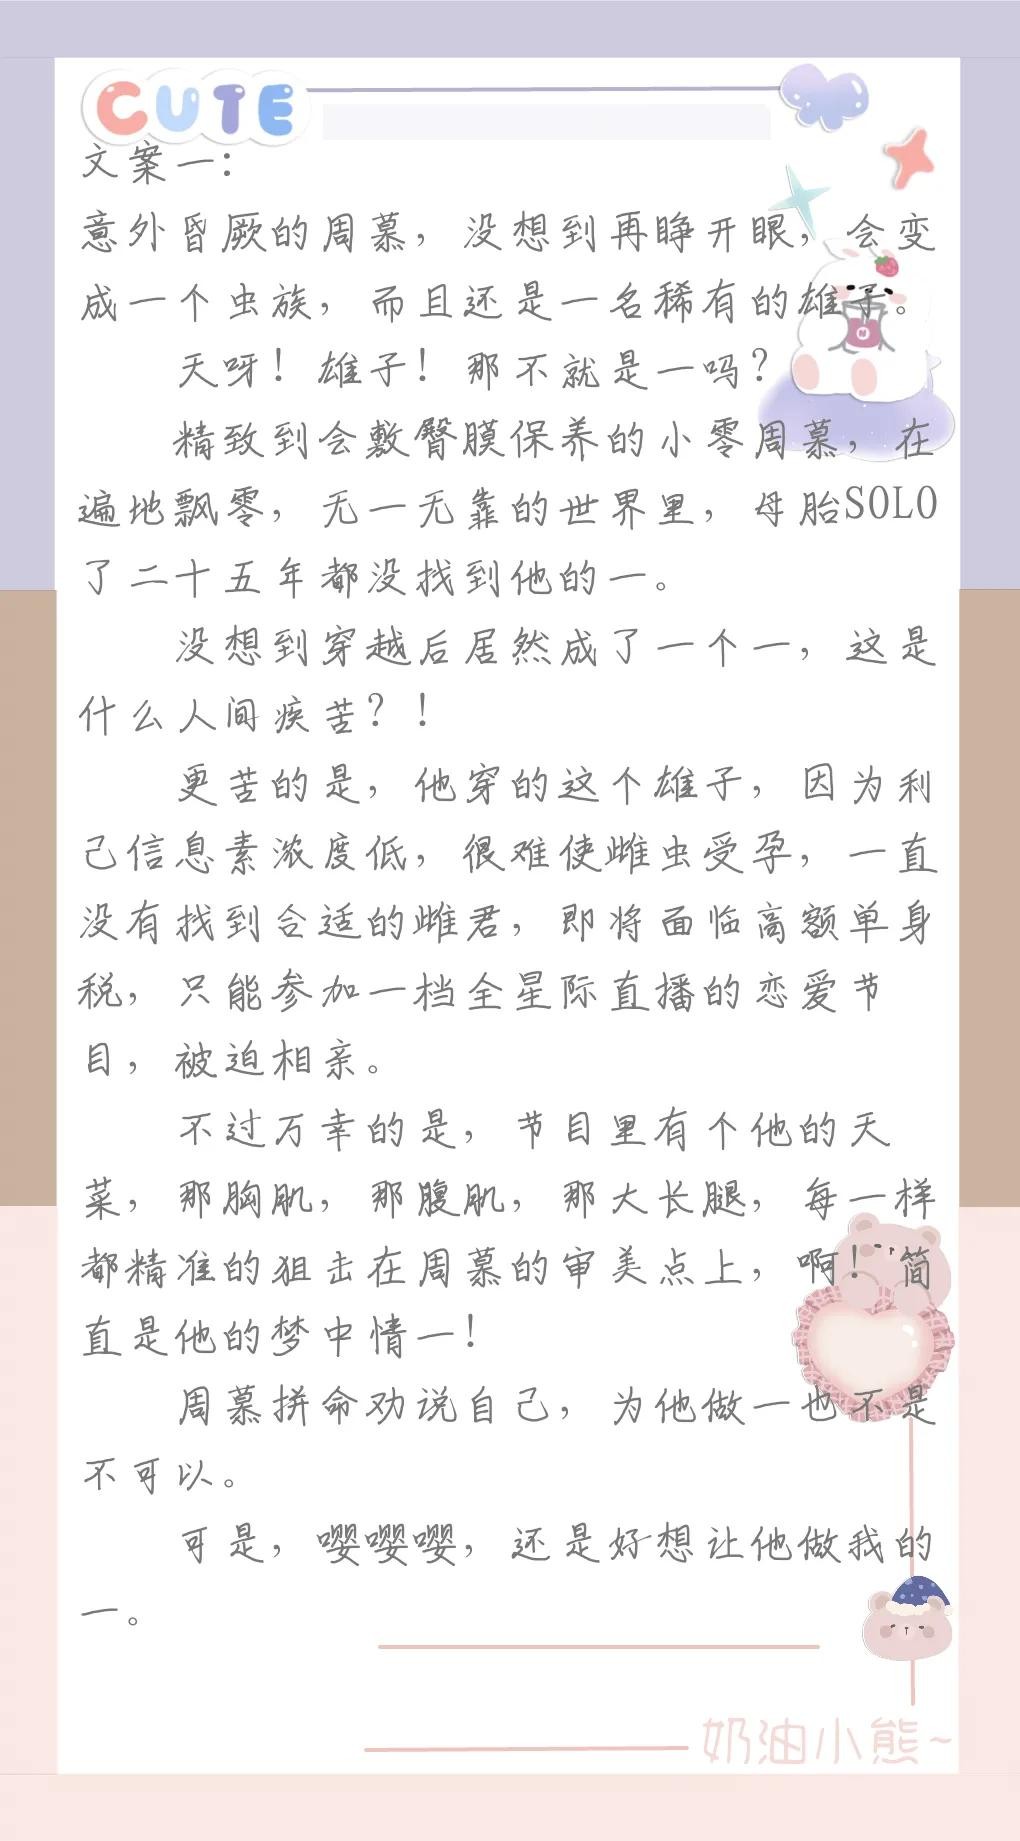 CUTE
文案一：
意外昏厥的周慕，没想到再睁开眼，会变
成一个虫族，而且还是一名稀有的雄子。
天呀！雄子！那不就是一吗？
精致到会敷臀膜保养的小零周慕，在
遍地飘零，无一无靠的世界里，母胎SOLO
了二十五年都没找到他的一。
没想到穿越后居然成了一个一，这是
什么人间疾苦？！
更苦的是，他穿的这个雄子，因为利
己信息素浓度低，很难使雌虫受孕，一直
没有找到合适的雌君，即将面临高额单身
税，只能参加一档全星际直播的恋爱节
目，被迫相亲。
不过万幸的是，节目里有个他的天
菜，那胸肌，那腹肌，那大长腿，每一样
都精准的狙击在周慕的审美点上，啊！简
直是他的梦中情一！
周慕拼命劝说自己，为他做一也不是
不可以。
可是，嘤嘤嘤，还是好想让他做我的
一。
奶油小熊~